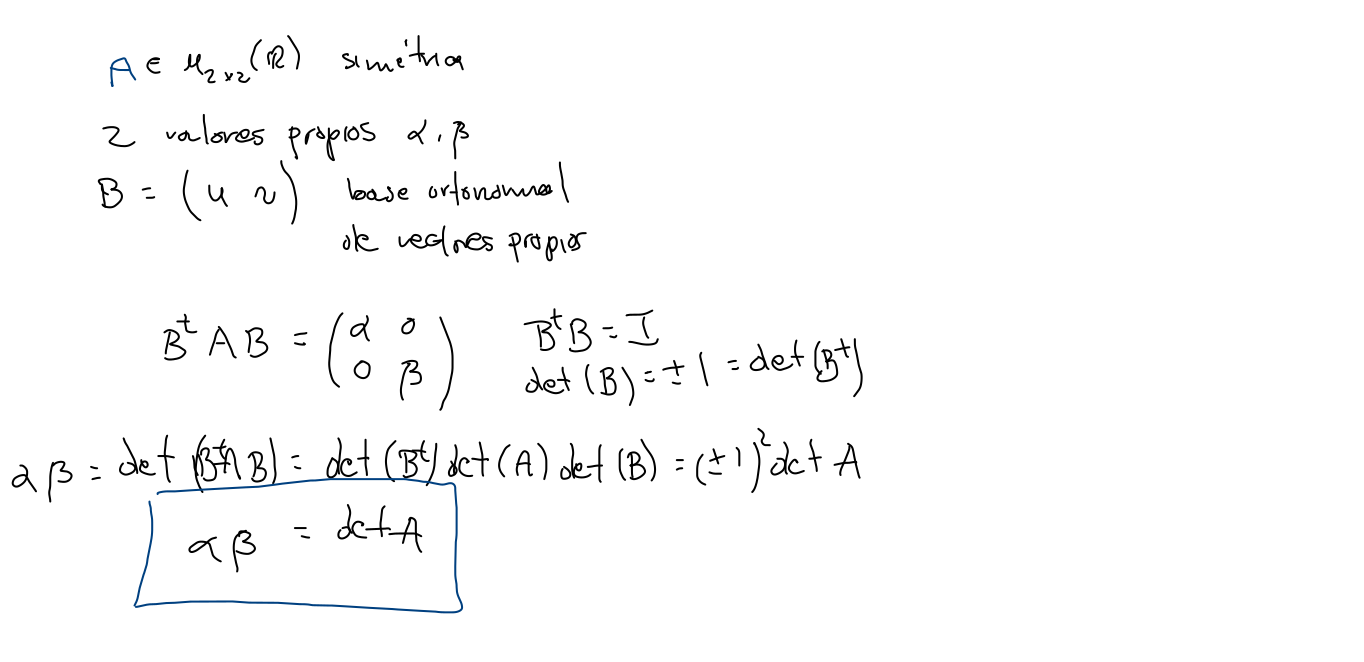 A ∈ M₂ₓ₂(ℝ) simétrica
2 valores propios α, β
B = (u v) base ortonormal
de vectores propios
BᵗAB = (α 0; 0 β) BᵗB = I
det(B) = ±1 = det(Bᵗ)
αβ = det(BᵗAB) = det(Bᵗ) det(A) det(B) = (±1)² det A
αβ = det A